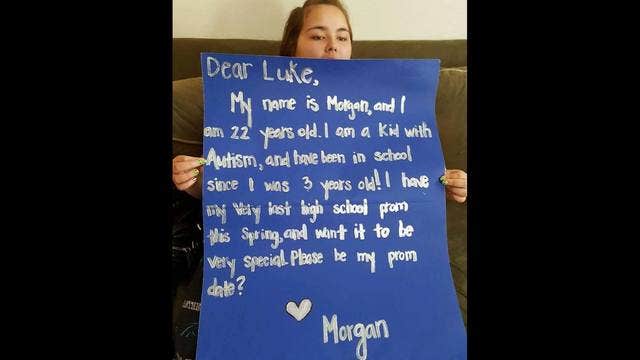 Dear Luke,
My name is Morgan, and I
am 22 years old. I am a Kid with
Autism, and have been in school
since I was 3 years old! I have
my very last high school prom
this Spring, and want it to be
very special. Please be my prom
date?
Morgan